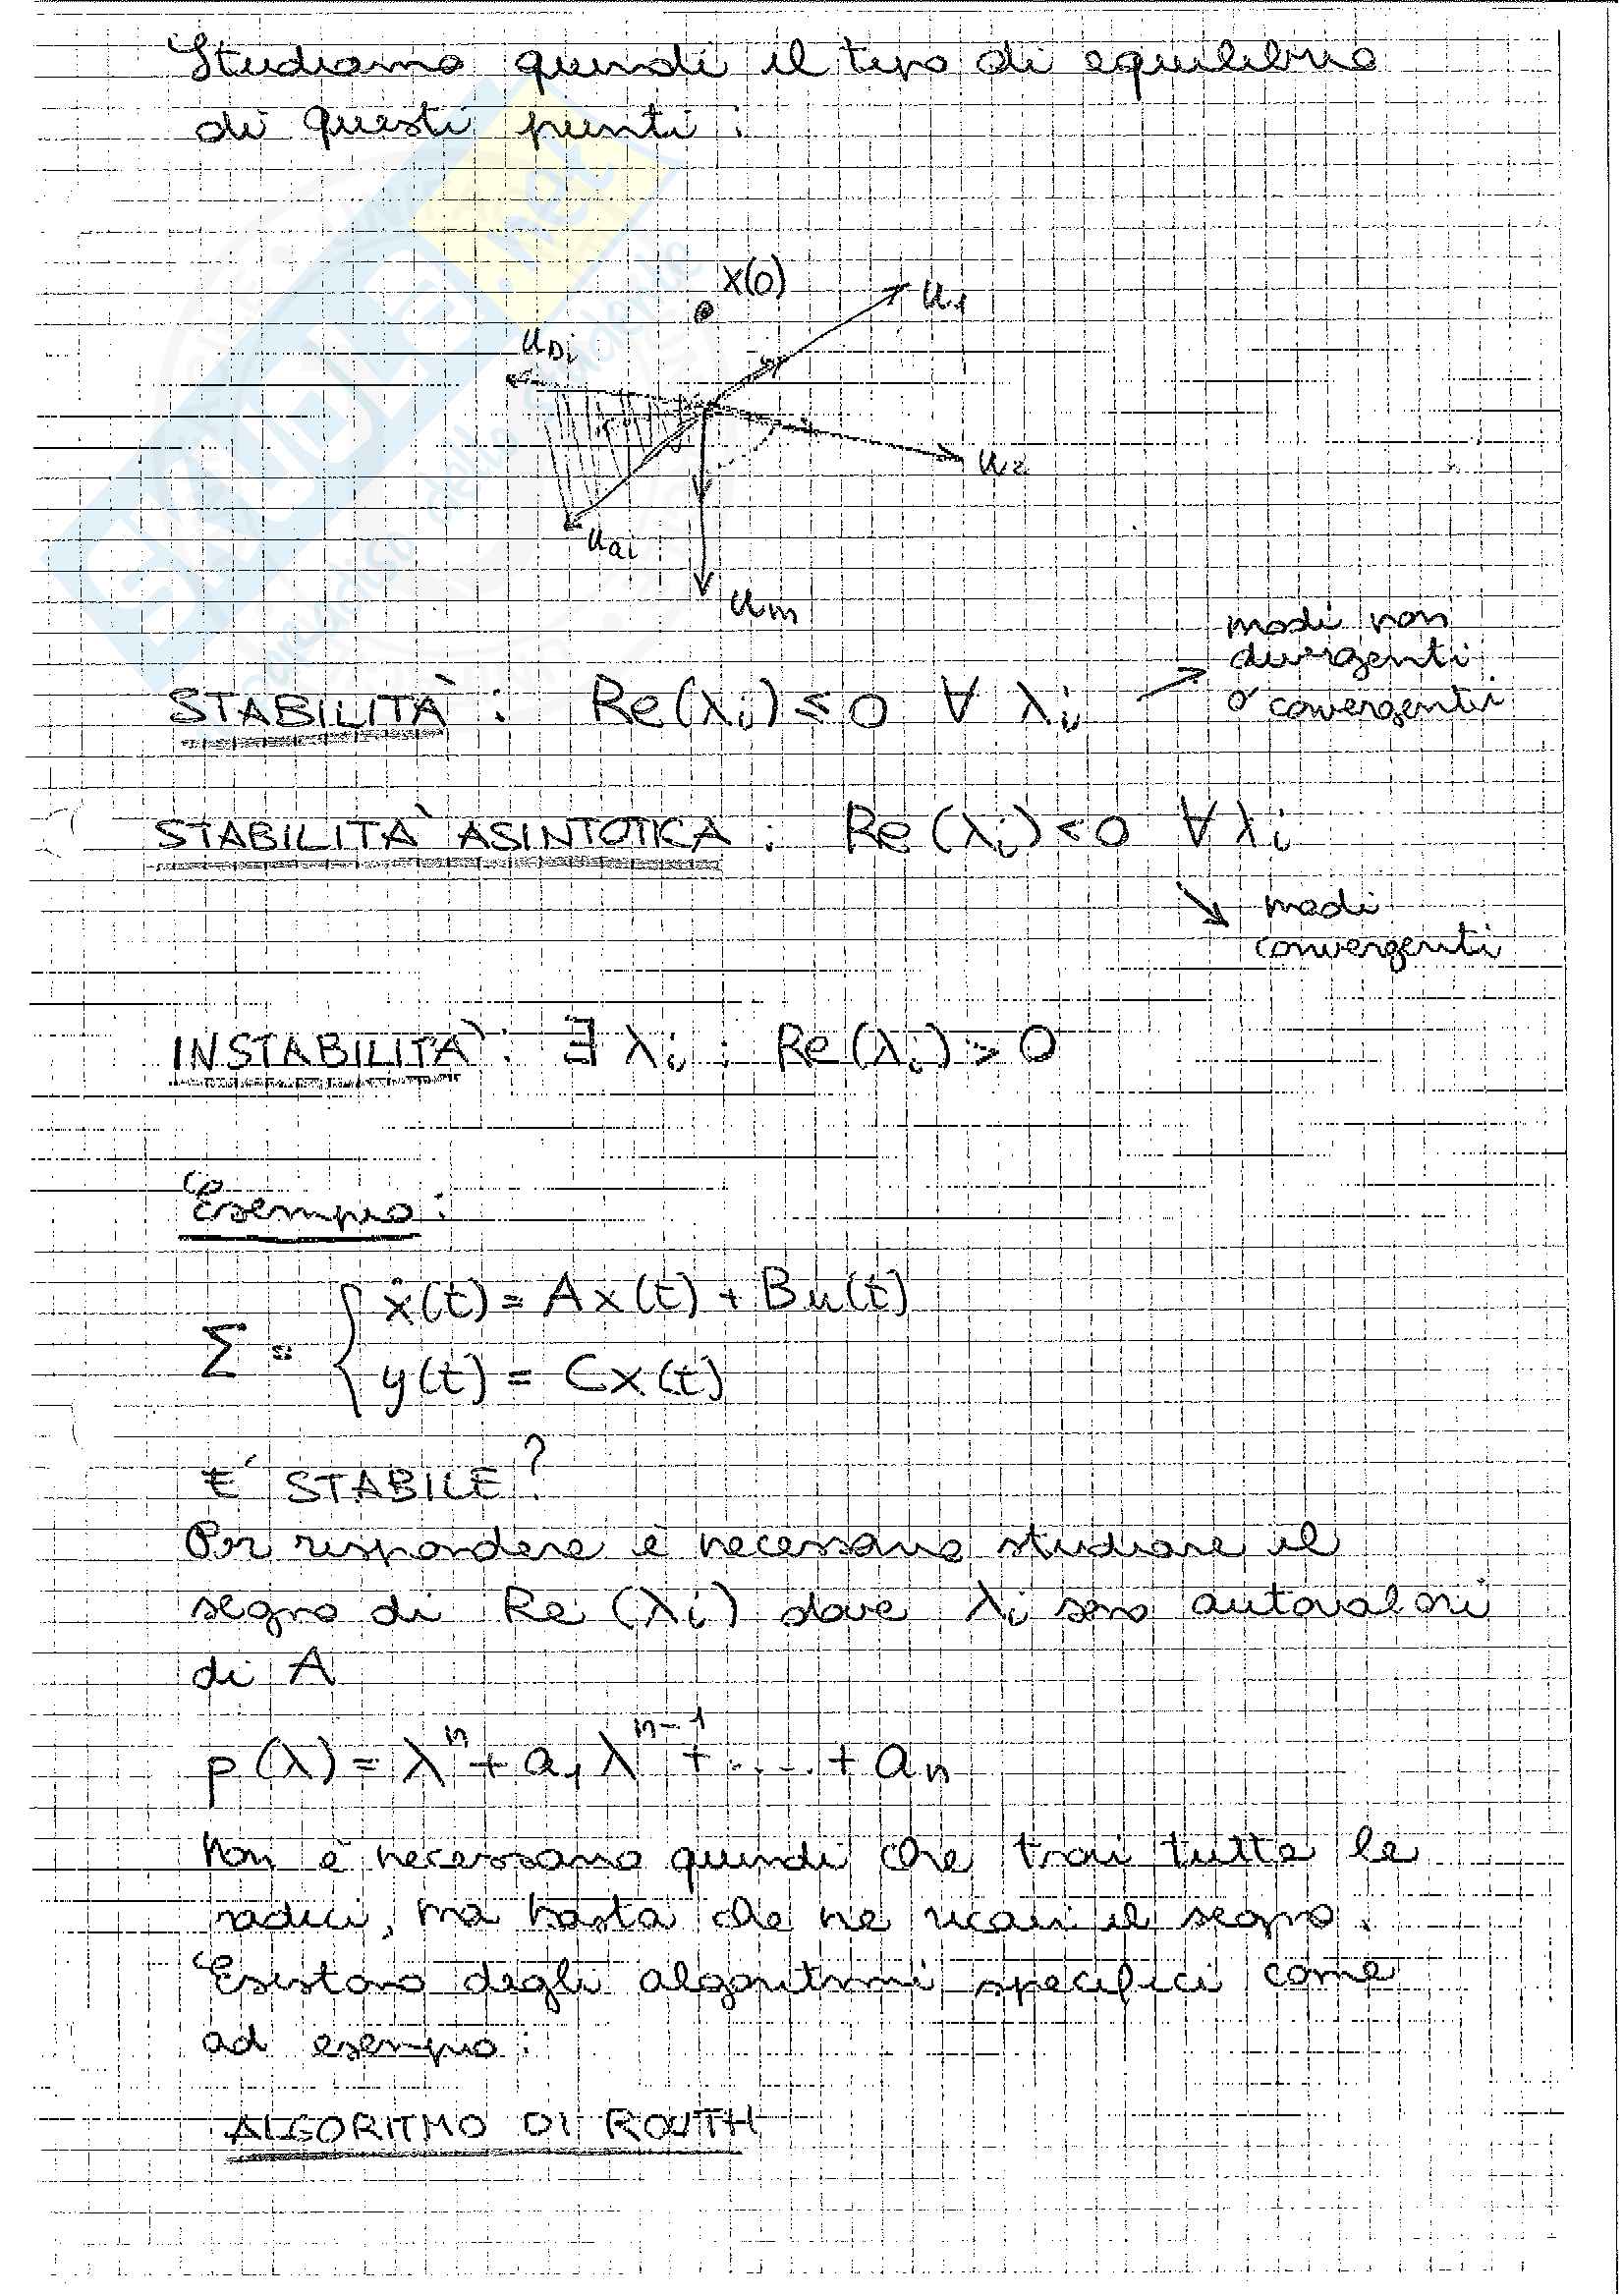 Studiamo quindi il tipo di equilibrio
di questi punti :
x(0)
u1
uDi
u2
uai
um
STABILITÀ : Re(λi) ≤ 0 ∀ λi → modi non
divergenti
o convergenti
STABILITÀ ASINTOTICA : Re(λi) < 0 ∀ λi
↘ modi
convergenti
INSTABILITÀ : ∃ λi : Re(λi) > 0
Esempio :
Σ = { ẋ(t) = Ax(t) + Bu(t)
y(t) = Cx(t)
E' STABILE ?
Per rispondere è necessario studiare il
segno di Re(λi) dove λi sono autovalori
di A
p(λ) = λ^n + a1 λ^n-1 + .... + an
Non è necessario quindi che trovi tutte le
radici, ma basta che ne ricavi il segno.
Esistono degli algoritmi specifici come
ad esempio :
ALGORITMO DI ROUTH
SKUOLA.net